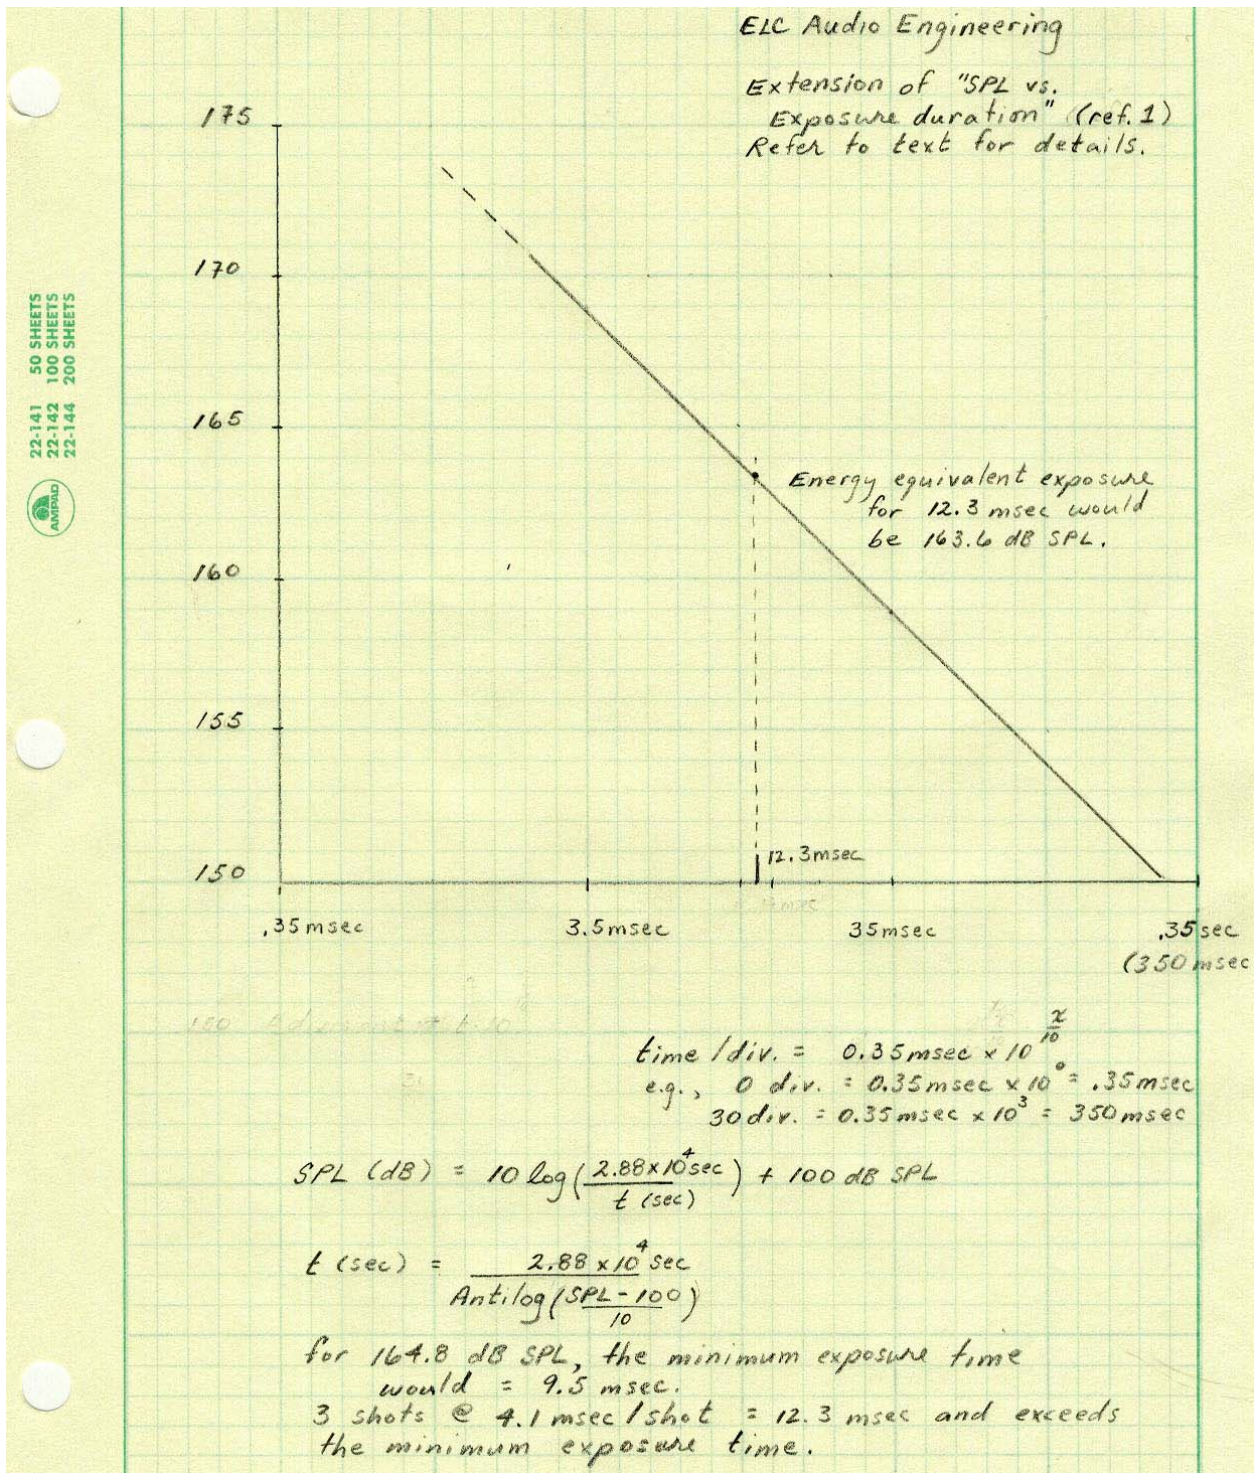 ELC Audio Engineering
Extension of "SPL vs.
Exposure duration" (ref. 1)
Refer to text for details.
175
170
165
160
155
150
22-141 50 SHEETS
22-142 100 SHEETS
22-144 200 SHEETS
AMPAD
Energy equivalent exposure
for 12.3 msec would
be 163.6 dB SPL.
12.3msec
.35 msec 3.5msec 35msec .35 sec
(350 msec
time /div. = 0.35msec x 10^(x/10)
e.g., 0 div. = 0.35msec x 10^0 = .35msec
30 div. = 0.35msec x 10^3 = 350 msec
SPL (dB) = 10 log(2.88x10^4 sec / t (sec)) + 100 dB SPL
t (sec) = 2.88 x 10^4 sec / Antilog(SPL-100 / 10)
for 164.8 dB SPL, the minimum exposure time
would = 9.5 msec.
3 shots @ 4.1 msec/shot = 12.3 msec and exceeds
the minimum exposure time.